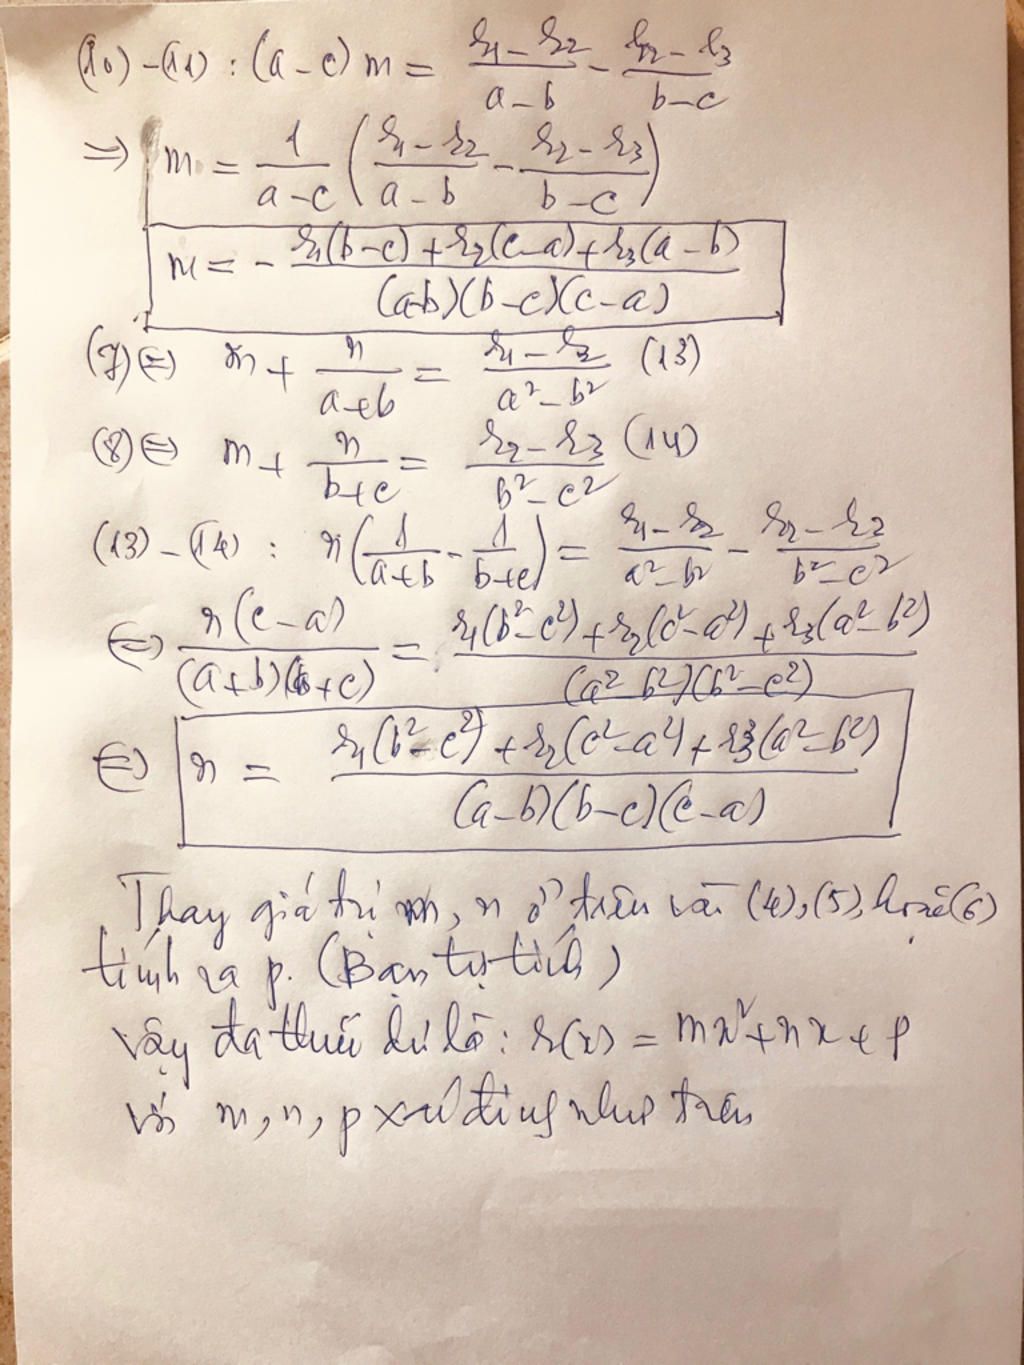 (10) - (11) : (a - c) m = (r₁ - r₂)/(a - b) - (r₂ - r₃)/(b - c)
⇒ m = 1/(a - c) ((r₁ - r₂)/(a - b) - (r₂ - r₃)/(b - c))
m = - (r₁(b - c) + r₂(c - a) + r₃(a - b))/((a - b)(b - c)(c - a))
(7) ⇔ m + n/(a + b) = (r₁ - r₂)/(a² - b²) (13)
(8) ⇔ m + n/(b + c) = (r₂ - r₃)/(b² - c²) (14)
(13) - (14) : n(1/(a + b) - 1/(b + c)) = (r₁ - r₂)/(a² - b²) - (r₂ - r₃)/(b² - c²)
⇔ n(c - a)/((a + b)(b + c)) = (r₁(b² - c²) + r₂(c² - a²) + r₃(a² - b²))/((a² - b²)(b² - c²))
⇔ n = (r₁(b² - c²) + r₂(c² - a²) + r₃(a² - b²))/((a - b)(b - c)(c - a))
Thay giá trị m, n ở trên vào (4), (5), hoặc (6)
tính ra p. (Bạn tự tính)
Vậy đa thức dư là : r(x) = mx² + nx + p
với m, n, p xác định như trên